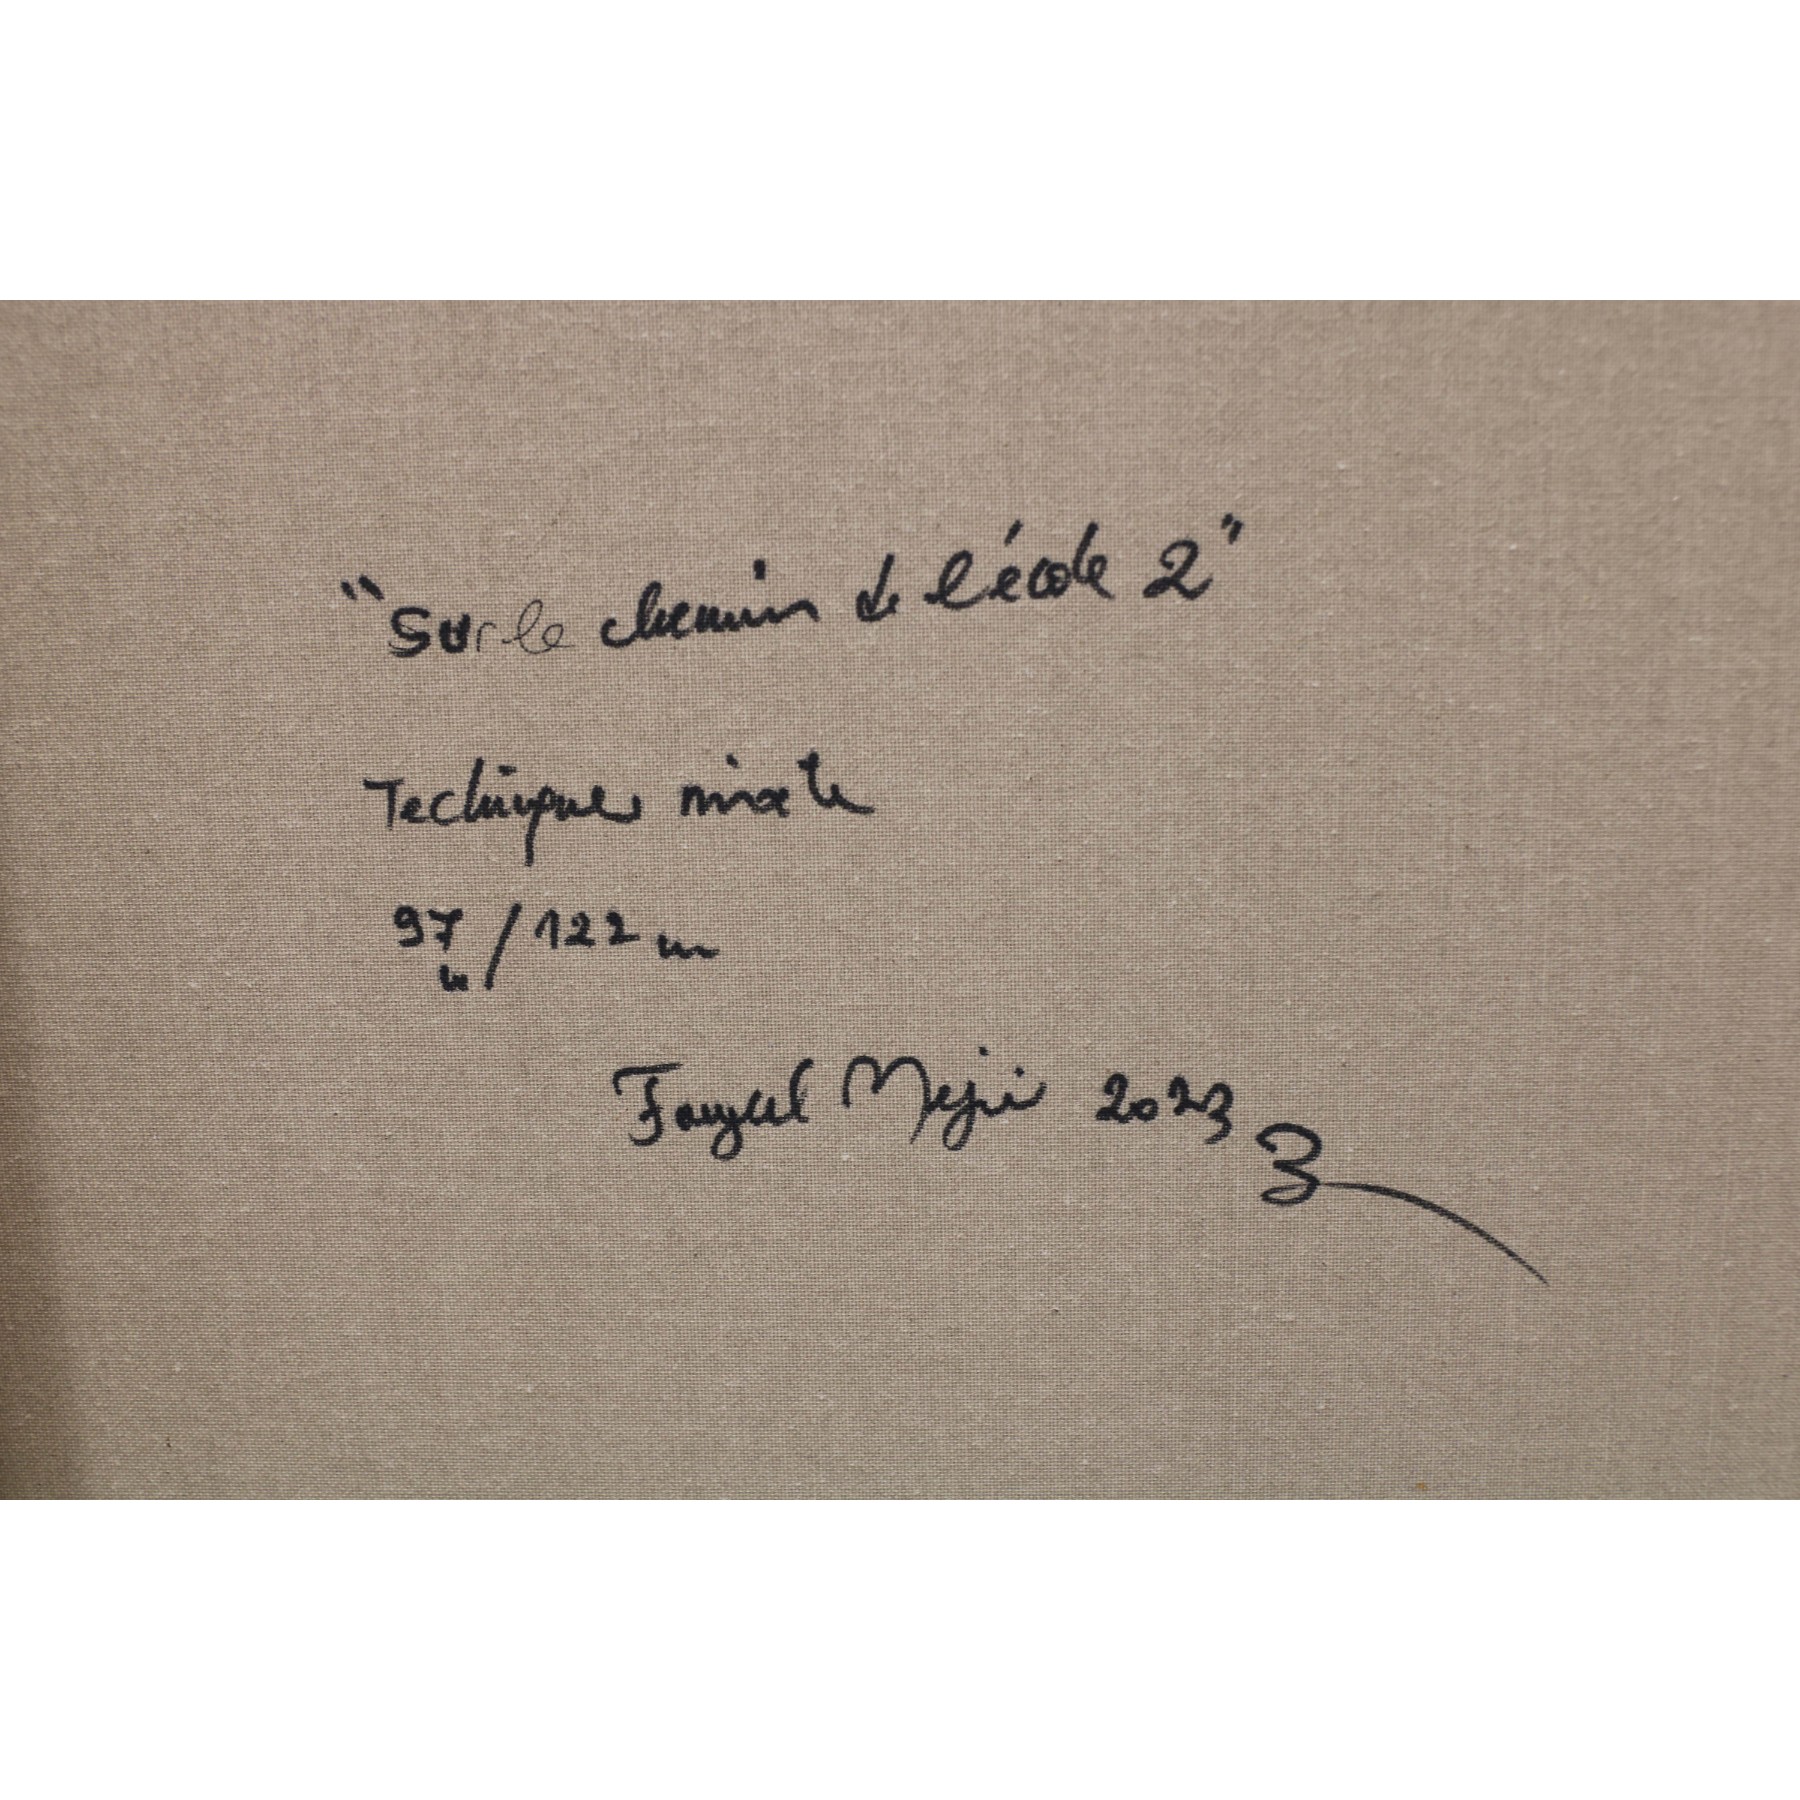 "Sur le chemin de l'école 2"
Techniques mixte
97 cm / 122 cm
Fayçal Mejri 2023